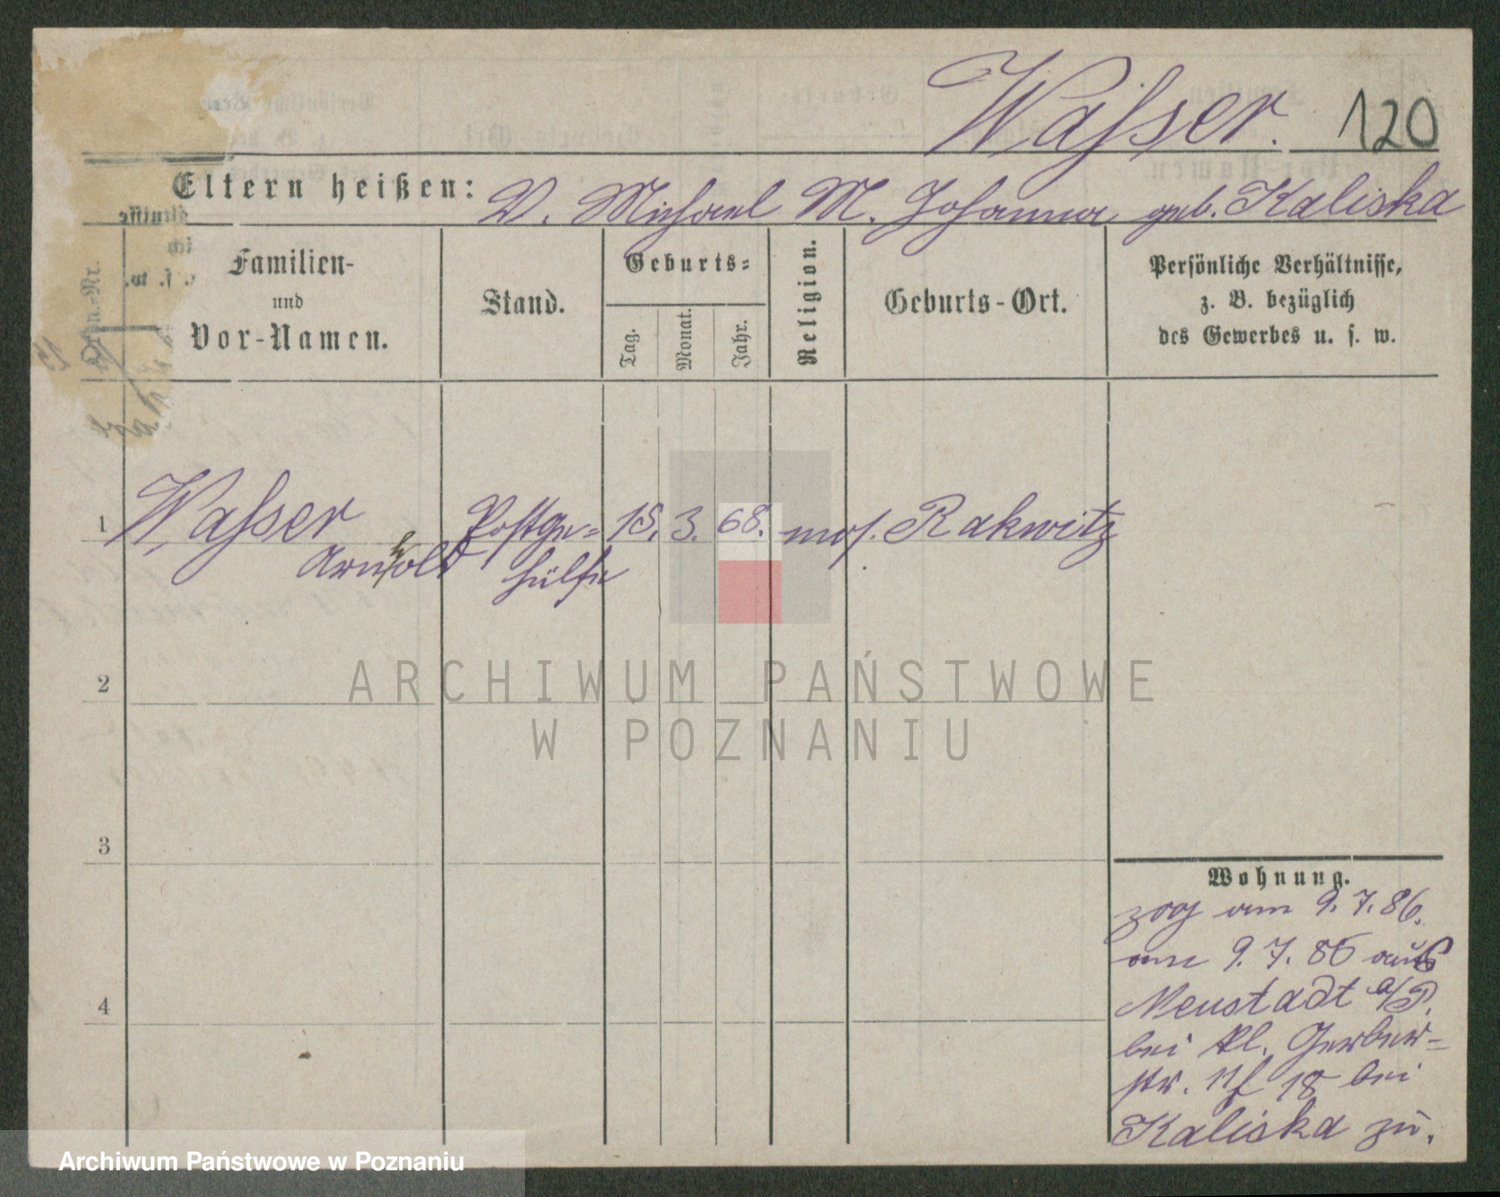 Wasser. 120
Eltern heißen: V. Michael M. Johanna geb. Kaliska
Familien-
und
Vor-Namen.
Stand.
Geburts-
Tag.
Monat.
Jahr.
Religion.
Geburts-Ort.
Persönliche Verhältnisse,
z. B. bezüglich
des Gewerbes u. s. w.
1 Wasser Postge- 15. 3. 68. mos. Rakwitz
Arnhold hülfe
2
3
4
Wohnung.
zog am 9. 7. 86.
am 9. 7. 86 aus
Neustadt a/P.
bei Kl. Gerber-
str. 18 bei
Kaliska zu.
ARCHIWUM PAŃSTWOWE
W POZNANIU
Archiwum Państwowe w Poznaniu